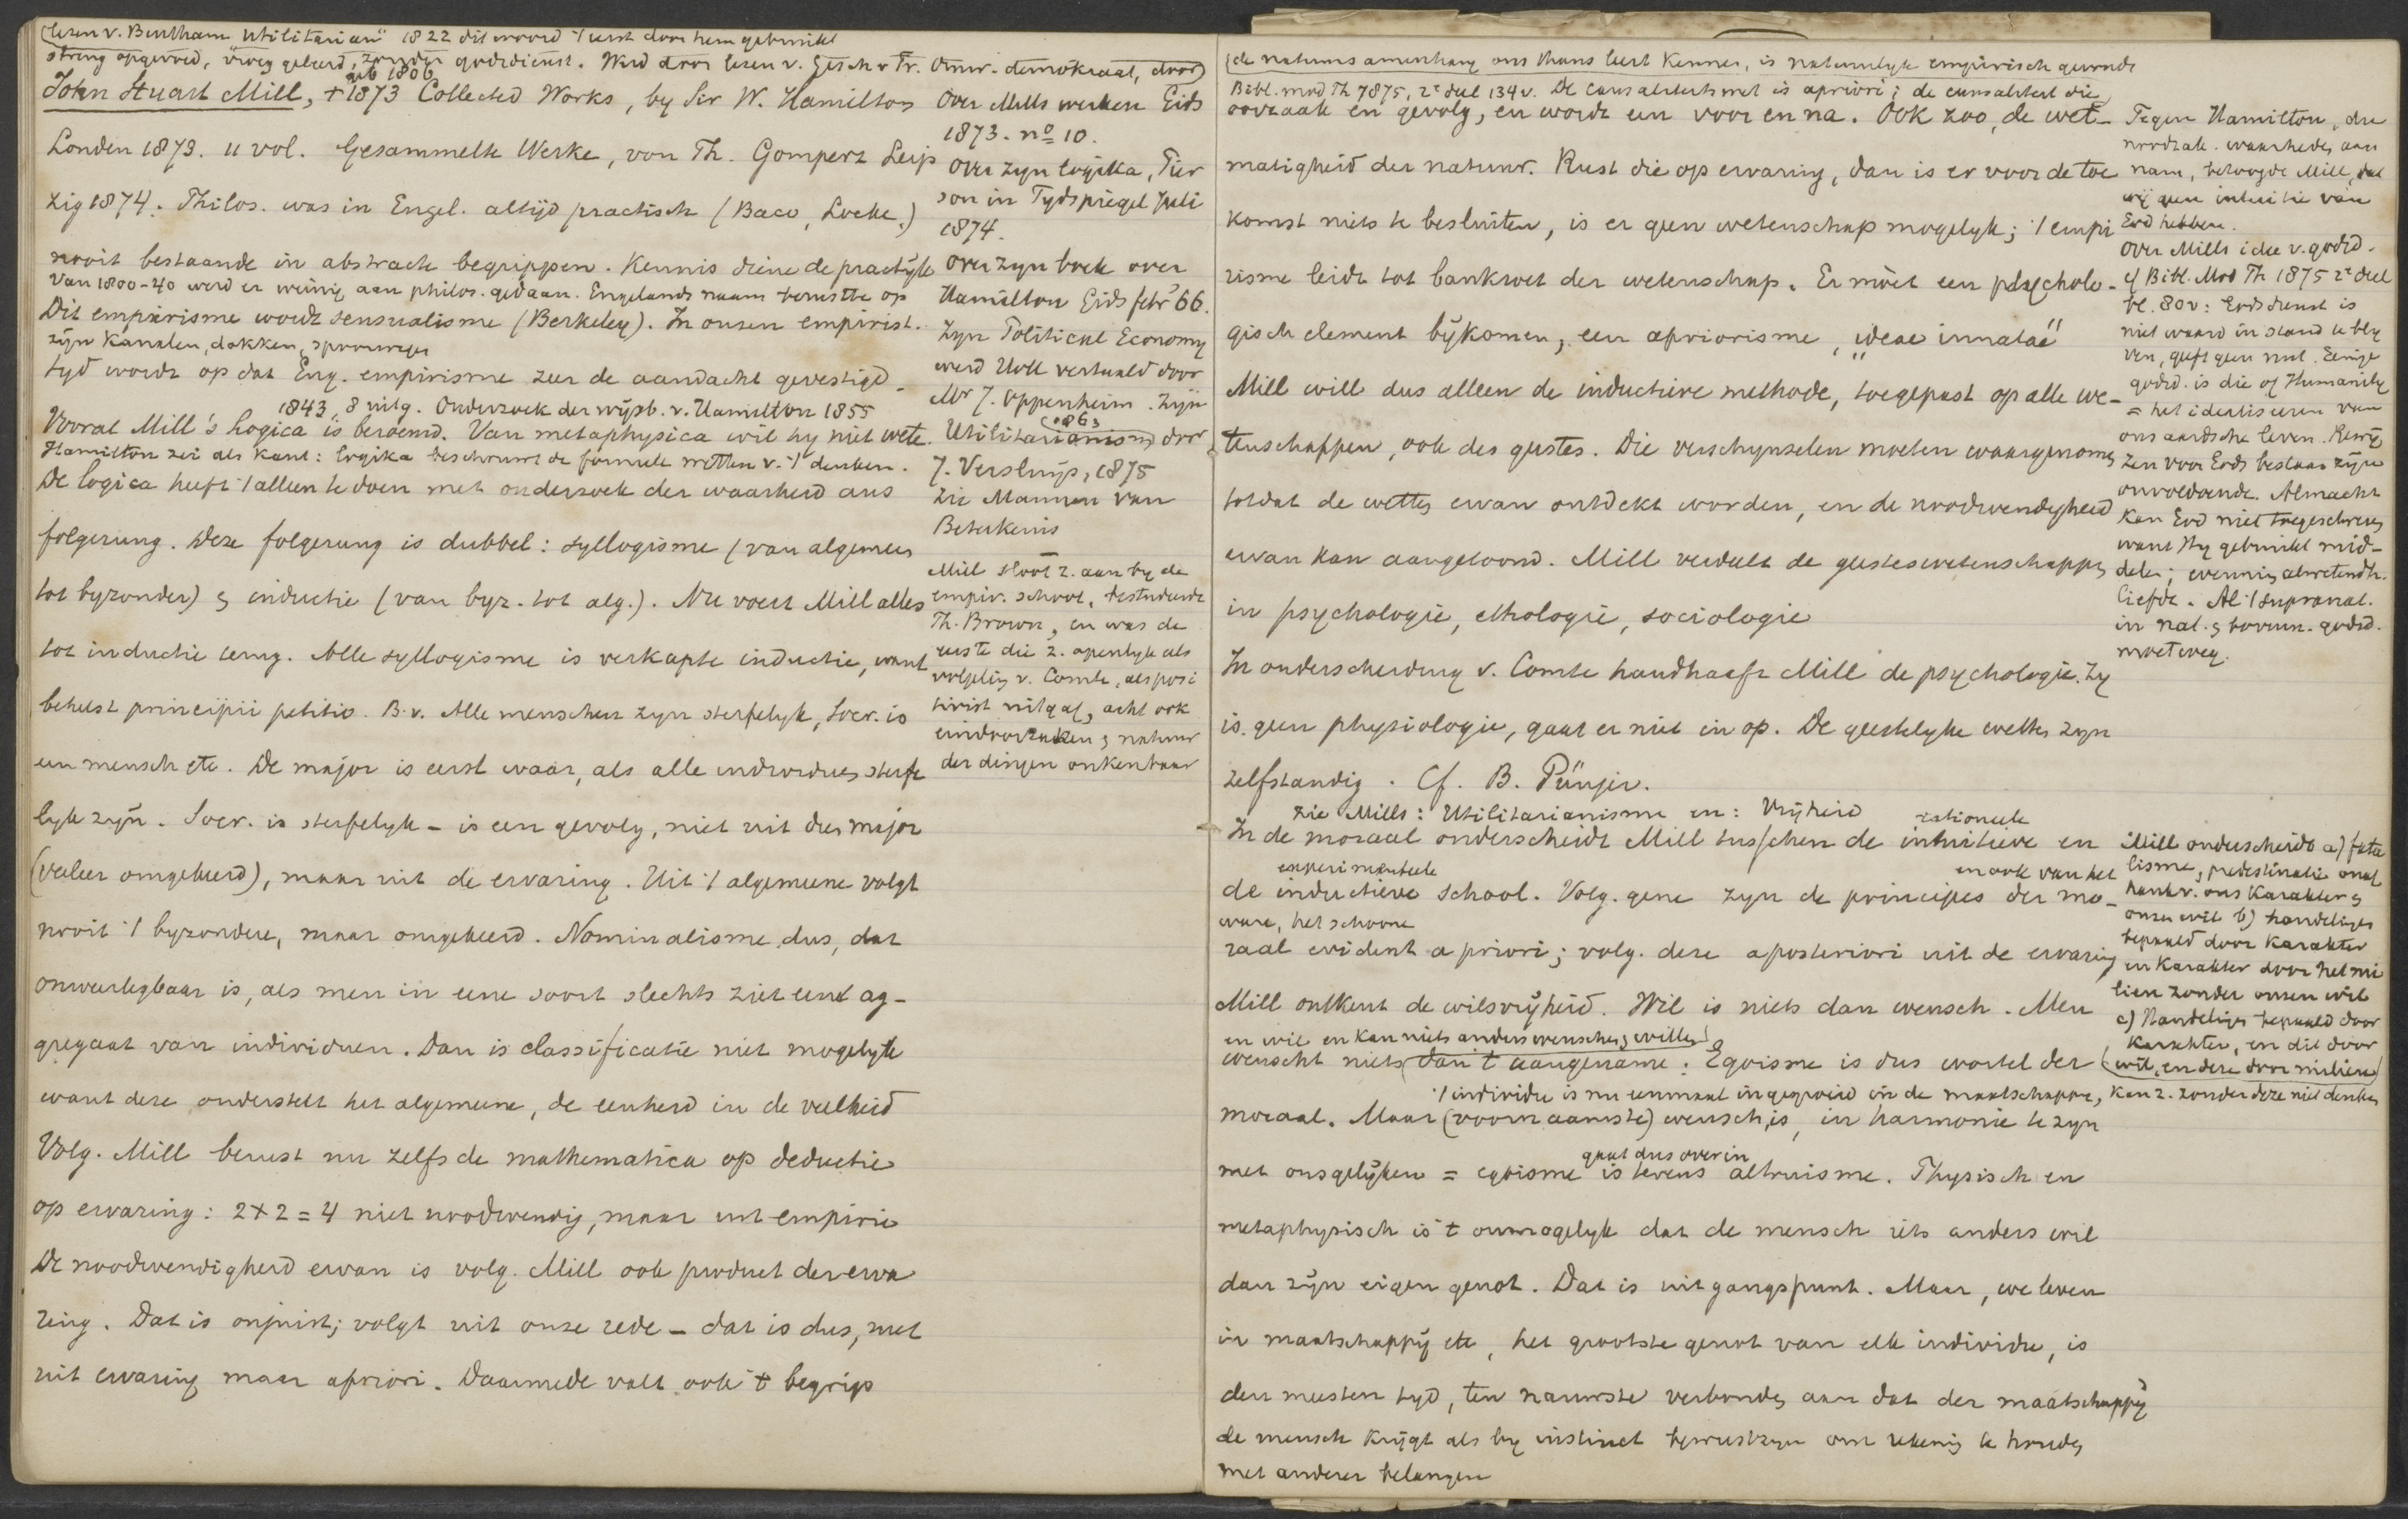 lezen v. Bentham "Utilitarian" 1822 dit woord 't eerst door hem gebruikt
streng opgevoed, vroeg geleerd, zonder godsdienst. Werd door lezen v. Gesch v Fr. Omw. demokraat, door
geb 1806
John Stuart Mill, +1873 Collected Works, by Sir W. Hamilton
Londen 1873. 11 vol. Gesammelte Werke, von Th. Gomperz Leip
zig 1874. Philos. was in Engel. altijd practisch (Baco, Locke.)
nooit bestaande in abstracte begrippen. Kennis diene de practijk
Van 1800-40 werd er weinig aan philos. gedaan. Engelands naam berustte op
zijn kanalen, dokken, spoorwegen
Dit empirisme wordt sensualisme (Berkeley). In onzen empirist.
tyd wordt op dat Eng. empirisme zeer de aandacht gevestigd.
1843, 8 uitg. Onderzoek der wijsb. v. Hamilton 1855
Vooral Mill's Logica is beroemd. Van metaphysica wil hy niet wete.
Hamilton zei als Kant: logika beschrouwt de formeele wetten v. 't denken.
De logica heeft 't alleen te doen met onderzoek der waarheid ans
folgerung. Deze folgerung is dubbel: syllogisme (van algemeen
tot byzonder) & inductie (van byz. tot alg.). Nu voert Mill alles
tot inductie terug. Alle syllogisme is verkapte inductie, want
behelst principii petitio. B.v. Alle menschen zyn sterfelyk, Socr. is
een mensch etc. De major is eerst waar, als alle individuen sterfe
lyk zyn. Socr. is sterfelyk - is een gevolg, niet uit den major
(veeleer omgekeerd), maar uit de ervaring. Uit 't algemeene volgt
nooit 't byzondere, maar omgekeerd. Nominalisme dus, dat
onweerlegbaar is, als men in eene soort slechts ziet eene ag-
gregaat van individuen. Dan is classificatie niet mogelyk
want deze onderstelt het algemeene, de eenheid in de veelheid
Volg. Mill berust nu zelfs de mathematica op deductie
op ervaring: 2 x 2 = 4 niet noodwendig, maar uit empirie
De noodwendigheid ervan is volg. Mill ook product der erva
ring. Dat is onjuist; volgt uit onze rede - dat is dus, niet
uit ervaring maar apriori. Daarmede valt ook 't begrip
Over Mills werken Gids
1873. no 10.
Over zyn logika, Pier
son in Tydspiegel Juli
1874.
Over zyn boek over
Hamilton Gids febr 66.
Zyn Political Economy
werd Holl vertaald door
Mr J. Oppenheim. Zijn
1863
Utilitarianism door
J. Versluijs, 1875
Zie Mannen van
Beteekenis
Mill sloot z. aan by de
empir. school, bestudeerde
Th. Brown, en was de
eerste die z. openlyk als
volgeling v. Comte, als posi
tivist uitgaf, acht ook
eindoorzaken & natuur
der dingen onkenbaar
de natuursamenhang ons thans leert kennen, is natuurlyk empirisch
Bibl. mod Th 1875, 2e deel 134 v. De causaliteitswet is apriori; de causaliteit die
oorzaak en gevolg, en wordt een voor en na. Ook zoo, de wet-
matigheid der natuur. Rust die op ervaring, dan is er voor de toe
komst niets te besluiten, is er geen wetenschap mogelyk; 't empi
risme leidt tot bankroet der wetenschap. Er moet een psycholo-
gisch element bijkomen, een apriorisme, "ideae innatae"
Mill will dus alleen de inductieve methode, toegepast op alle we-
tenschappen, ook des geestes. Die verschynselen moeten waargenomen
totdat de wetten ervan ontdekt worden, en de noodwendigheid
ervan kan aangetoond. Mill verdeelt de geesteswetenschappen
in psychologie, ethologie, sociologie
In onderscheiding v. Comte handhaaft Mill de psychologie. Zy
is geen physiologie, gaat er niet in op. De geestelyke wetten zyn
zelfstandig. Cf. B. Pünjer.
Zie Mills: Utilitarianisme en: Vrijheid
rationeele
In de moraal onderscheidt Mill tusschen de intuitieve en
experimenteele
en ook van het
de inductieve school. Volg. gene zyn de principes der mo-
ware, het schoone
raal evident a priori; volg. deze aposteriori uit de ervaring
Mill ontkent de wilsvrijheid. Wil is niets dan wensch. Men
en wil en kan niets anders wenschen & willen
wenscht niets dan 't aangename. Egoisme is dus wortel der
't individu is nu eenmaal ingegroeid in de maatschappy, kan z. zonder deze niet denken
moraal. Maar (voornaamste) wensch is, in harmonie te zyn
gaat dus over in
met onsgelijken = egoisme is tevens altruisme. Physisch en
metaphysisch is 't onmogelyk dat de mensch iets anders wil
dan zijn eigen genot. Dat is uitgangspunt. Maar, we leven
in maatschappij etc, het grootste genot van elk individu, is
den meesten tyd, ten nauwste verbonden aan dat der maatschappij
de mensch krijgt als by instinct bewustzyn om rekening te houden
met anderer belangen
Tegen Hamilton, die
noodzak. waarheden aan
nam, betoogde Mill, dat
wij geen intuitie van
God hebben.
Over Mills idee v. godsd.
cf Bibl. Mod Th 1875 2e deel
bl. 80 v: Godsdienst is
niet waard in stand te bly
ven, geeft geen nut. Eenige
godsd. is die of Humanity
= het idealiseeren van
ons aardsche leven. Bewij
zen voor Gods bestaan zijn
onvoldoende. Almacht
kan God niet toegeschreven
want Hy gebruikt mid-
delen; evenmin alwetendh.
liefde. Al 't supranat.
in nat. & bovennat. godsd.
moet weg.
Mill onderscheidt a) fata
lisme, predestinatie onaf
hank v. ons karakter &
onzen wil b) handelingen
bepaald door karakter
en karakter door het mi
lieu zonder onzen wil
c) Handelingen bepaald door
karakter, en dit door
wil, en deze door milieu